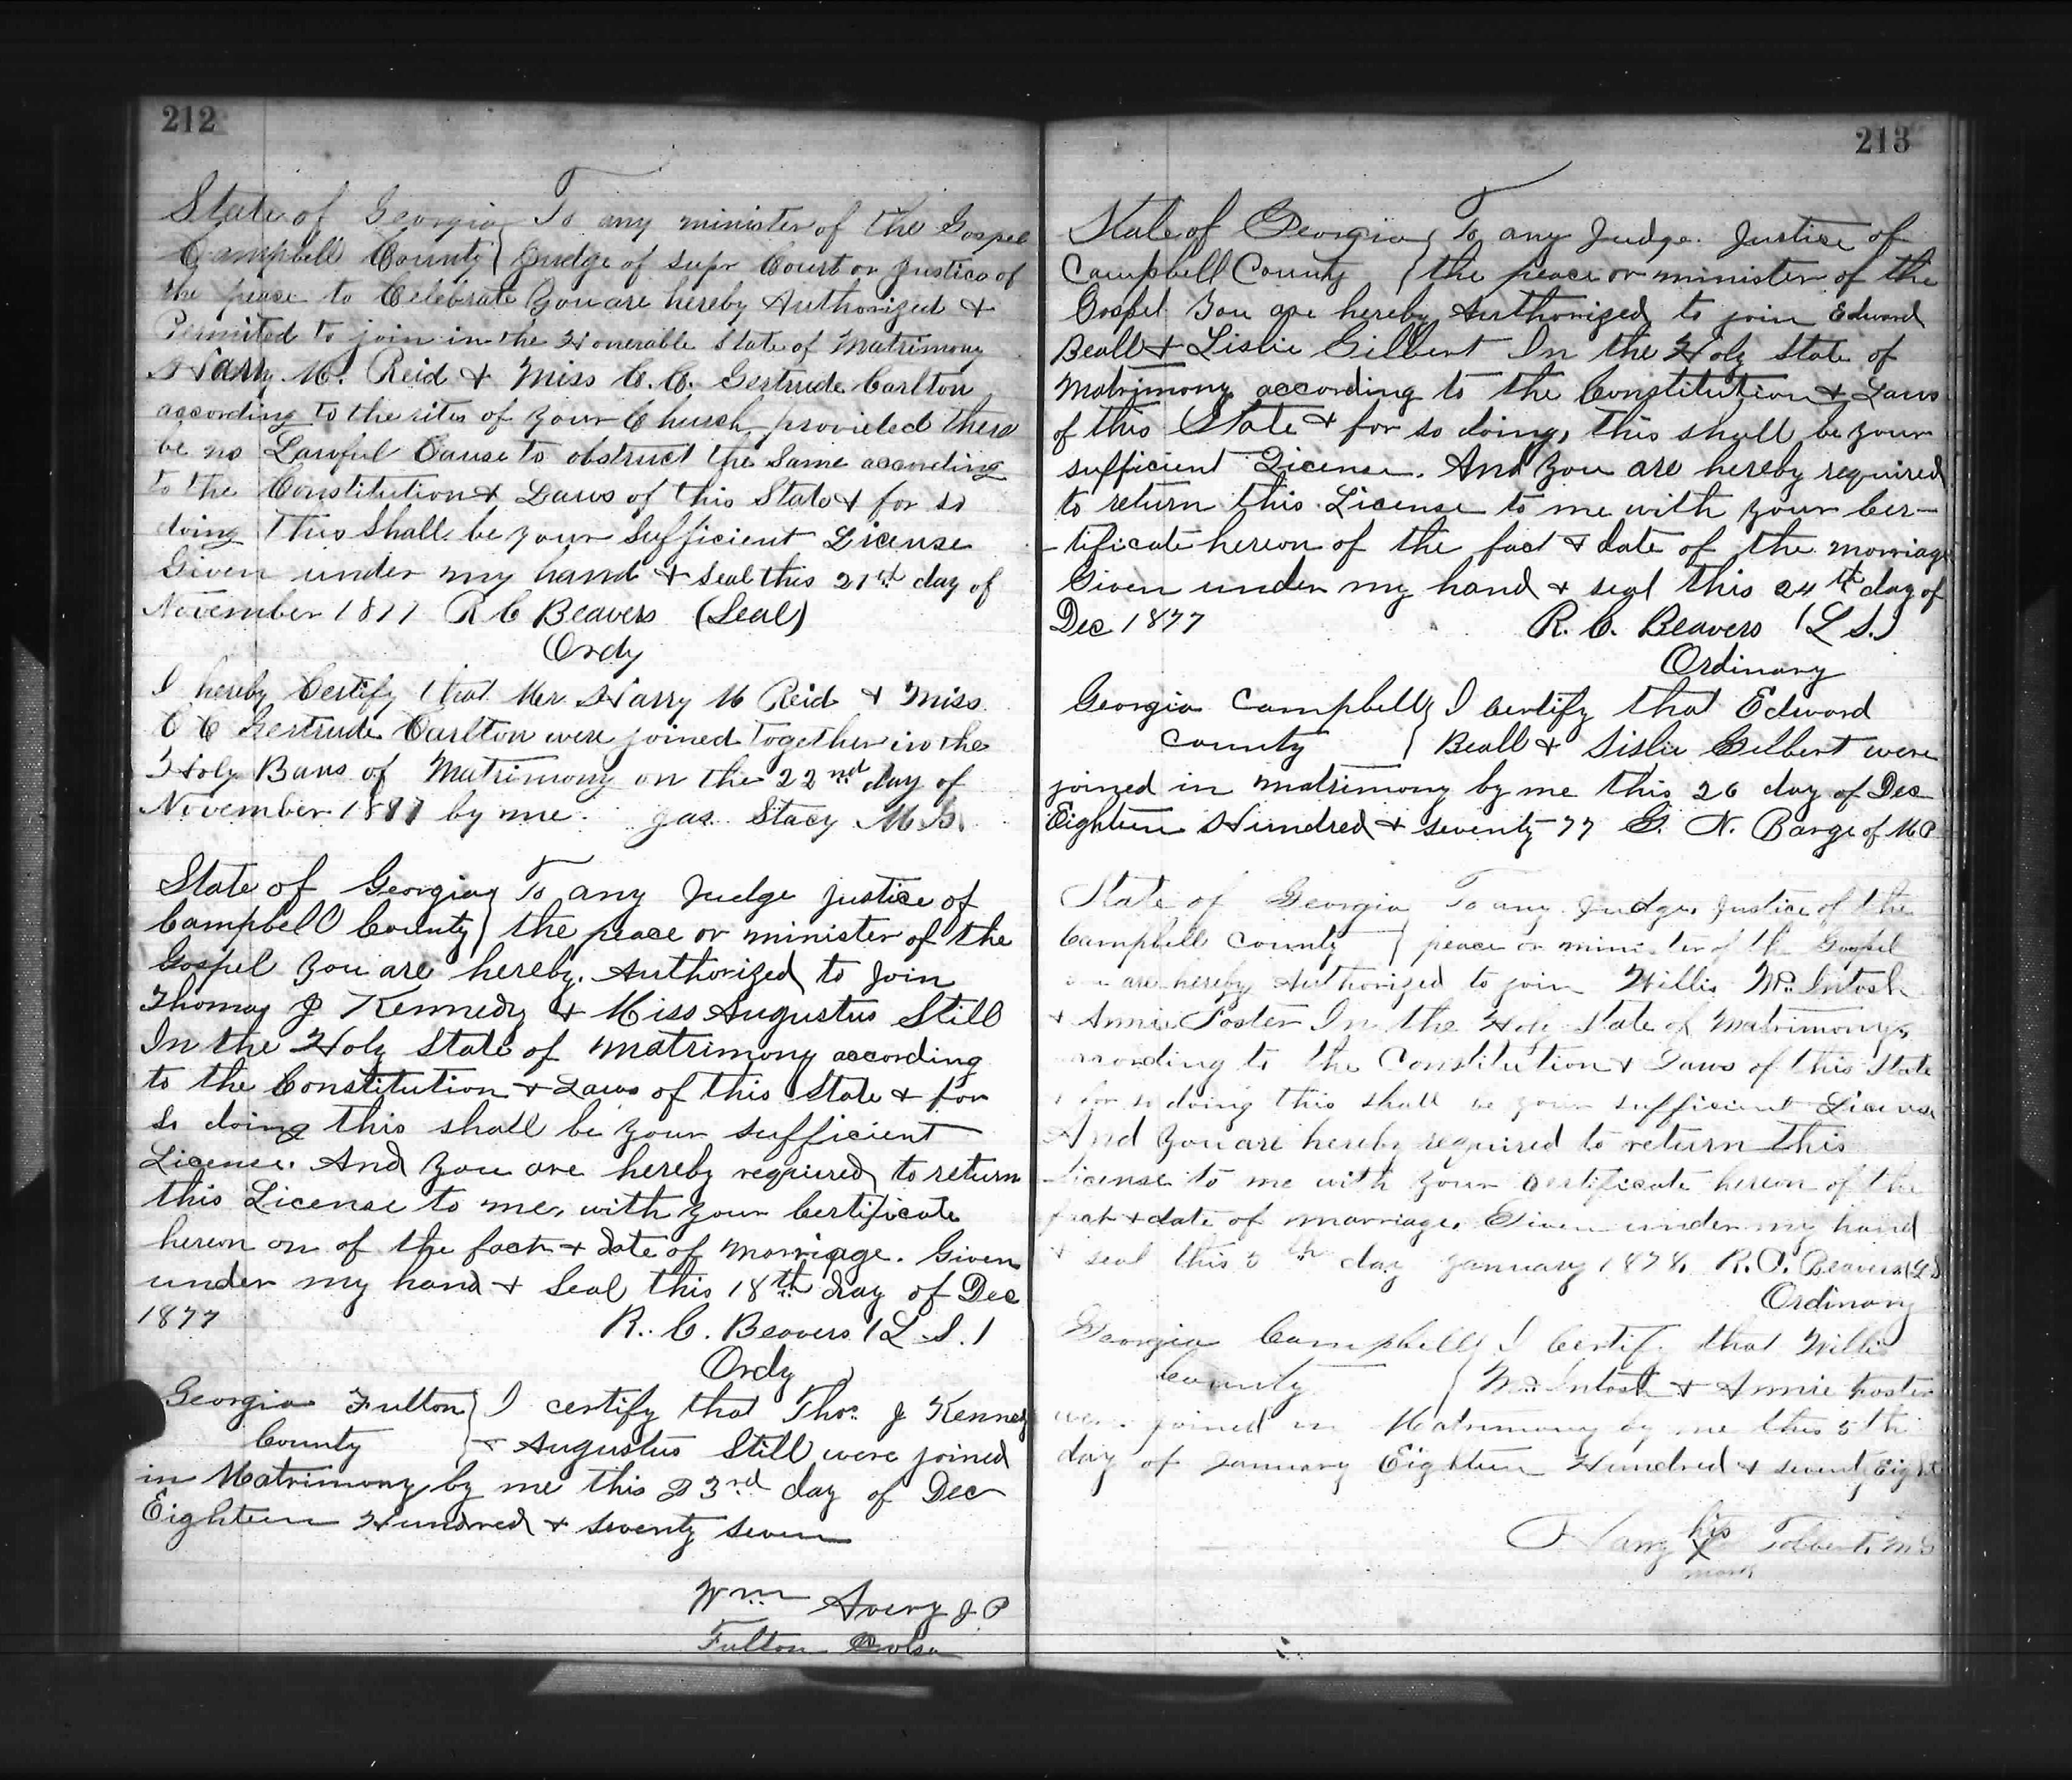 212
State of Georgia } To any minister of the Gospel
Campbell County } Judge of supr Court or Justice of
the peace to Celebrate You are hereby Authorized &
Permited to join in the Honerable State of Matrimony
Harry M. Reid & Miss C. C. Gertrude Carlton
according to the rites of your Church provided there
be no Lawful Cause to obstruct the Same according
to the Constitution & Laws of this State & for so
doing this shall be your Sufficient License
Given under my hand & seal this 21st day of
November 1877 R C Beavers (Seal)
Ordy
I hereby Certify that Mr Harry M Reid & Miss
C C Gertrude Carlton were joined together in the
Holy Bans of Matrimony on the 22nd day of
November 1877 by me. Jas. Stacy M.G.
State of Georgia } To any Judge justice of
Campbell County } the peace or minister of the
Gospel You are hereby Authorized to join
Thomas J Kennedy & Miss Augustus Still
In the Holy State of Matrimony according
to the Constitution & Laws of this State & for
so doing this shall be your sufficient
License. And You are hereby required to return
this License to me, with your Certificate
hereon on of the fact & date of Marriage. Given
under my hand & Seal this 18th day of Dec
1877 R. C. Beavers (L S.)
Ordy
Georgia Fulton } I certify that Thos J Kennedy
County } & Augustus Still were joined
in Matrimony by me this 23rd day of Dec
Eighteen Hundred & seventy seven
Wm Avery J P
Fulton
213
State of Georgia } To any Judge. Justice of
Campbell County } the peace or minister of the
Gospel You are hereby Authorized to join Edward
Beall & Lislie Gilbert In the Holy State of
Matrimony according to the Constitution & Laws
of this State & for so doing, this shall be your
sufficient License. And You are hereby required
to return this License to me with your Cer-
-tificate hereon of the fact & date of the marriage
Given under my hand & seal this 24th day of
Dec 1877 R. C. Beavers (L S.)
Ordinary
Georgia Campbell } I certify that Edward
County } Beall & Lislie Gilbert were
joined in matrimony by me this 26 day of Dec
Eighteen Hundred & seventy 77 G. N. Barge of M P
State of Georgia To any Judge, Justice of the
Campbell County } peace or minister of the Gospel
are hereby Authorized to join Willis McIntosh
& Annie Foster In the Holy State of Matrimony,
according to the Constitution & Laws of this State
& for so doing this shall be your sufficient License
And You are hereby required to return this
License to me with your Certificate hereon of the
fact & date of marriage. Given under my hand
& seal this 5th day January 1878. R. C. Beavers (L S
Ordinary
Georgia Campbell } I certify that Willis
County } McIntosh & Annie Foster
were joined in Matrimony by me this 5th
day of January Eighteen Hundred & seventy Eight
his
Harry X Tolbert, M G
mark